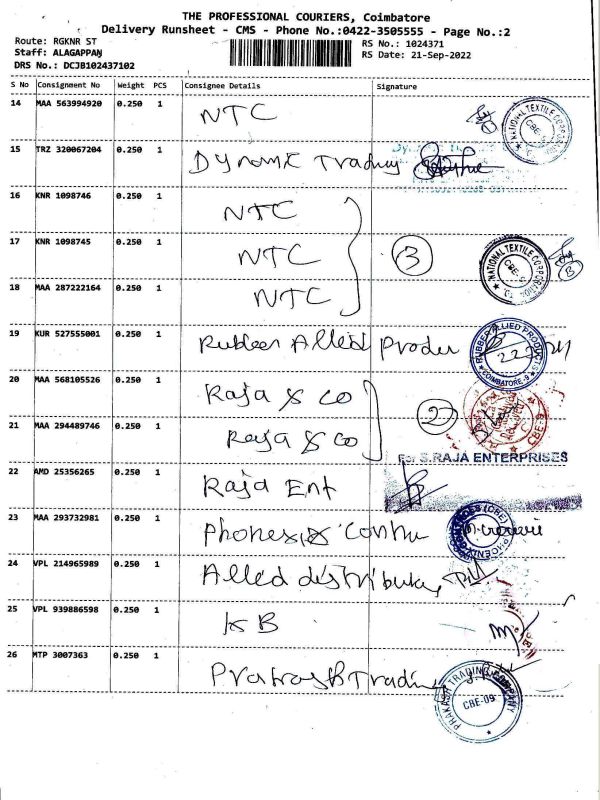 THE PROFESSIONAL COURIERS, Coimbatore
Delivery Runsheet - CMS - Phone No.:0422-3505555 - Page No.:2
Route: RGKNR ST
Staff: ALAGAPPAN
DRS No.: DCJB102437102
RS No.: 1024371
RS Date: 21-Sep-2022
S No Consignment No Weight PCS Consignee Details Signature
14 MAA 563994920 0.250 1 NTC
NATIONAL TEXTILE CORPO CBE-
15 TRZ 320067204 0.250 1 Dynamic Trading
16 KNR 1098746 0.250 1 NTC
17 KNR 1098745 0.250 1 NTC 3
NATIONAL TEXTILE CORPORATION CBE-
18 MAA 287222164 0.250 1 NTC
19 KUR 527555001 0.250 1 Rubber Allied Produ
RUBBER ALLIED PRODUCTS COIMBATORE-9
20 MAA 568105526 0.250 1 Raja & co
21 MAA 294489746 0.250 1 Raja & co 2
CBE-9
For S.RAJA ENTERPRISES
22 AMD 25356265 0.250 1 Raja Ent
23 MAA 293732981 0.250 1 Phonex & Contru
PHOENIX (CBE)
24 VPL 214965989 0.250 1 Allied distributers
25 VPL 939886598 0.250 1 KB
26 MTP 3007363 0.250 1 Prakash Trading
PRAKASH TRADING COMPANY CBE-09